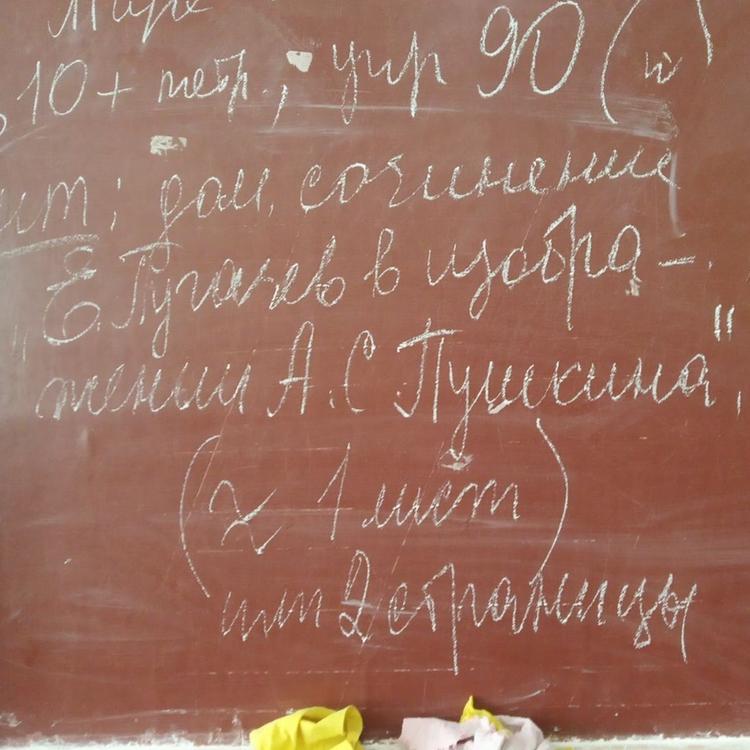 10+ тетр., упр 90 (и
ит; дом. сочинение
"Е. Пугачев в изобра-
жении А.С Пушкина",
(≈ 1 лист)
или 2 страницы